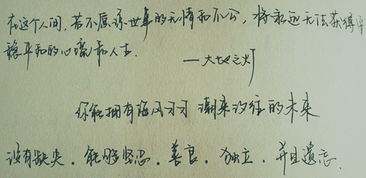 在这个人间，若不原谅世界的无情和不公，将永远无法获得
稳平和的心境和人生。
——大地之灯
你能拥有海风习习 潮来汐往的未来
没有缺失，能够坚忍，善良，独立，并且遗忘